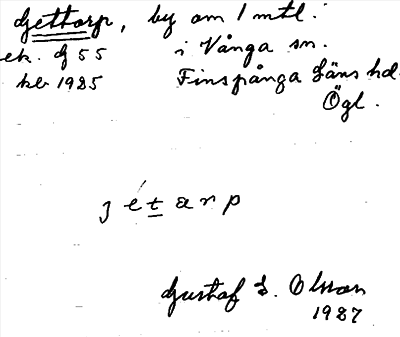 Gettorp, by om 1 mtl.
ek. G 55 i Vånga sn.
kb 1925 Finspånga läns hd.
Ögl.
jétarp
Gustaf E. Olsson
1927